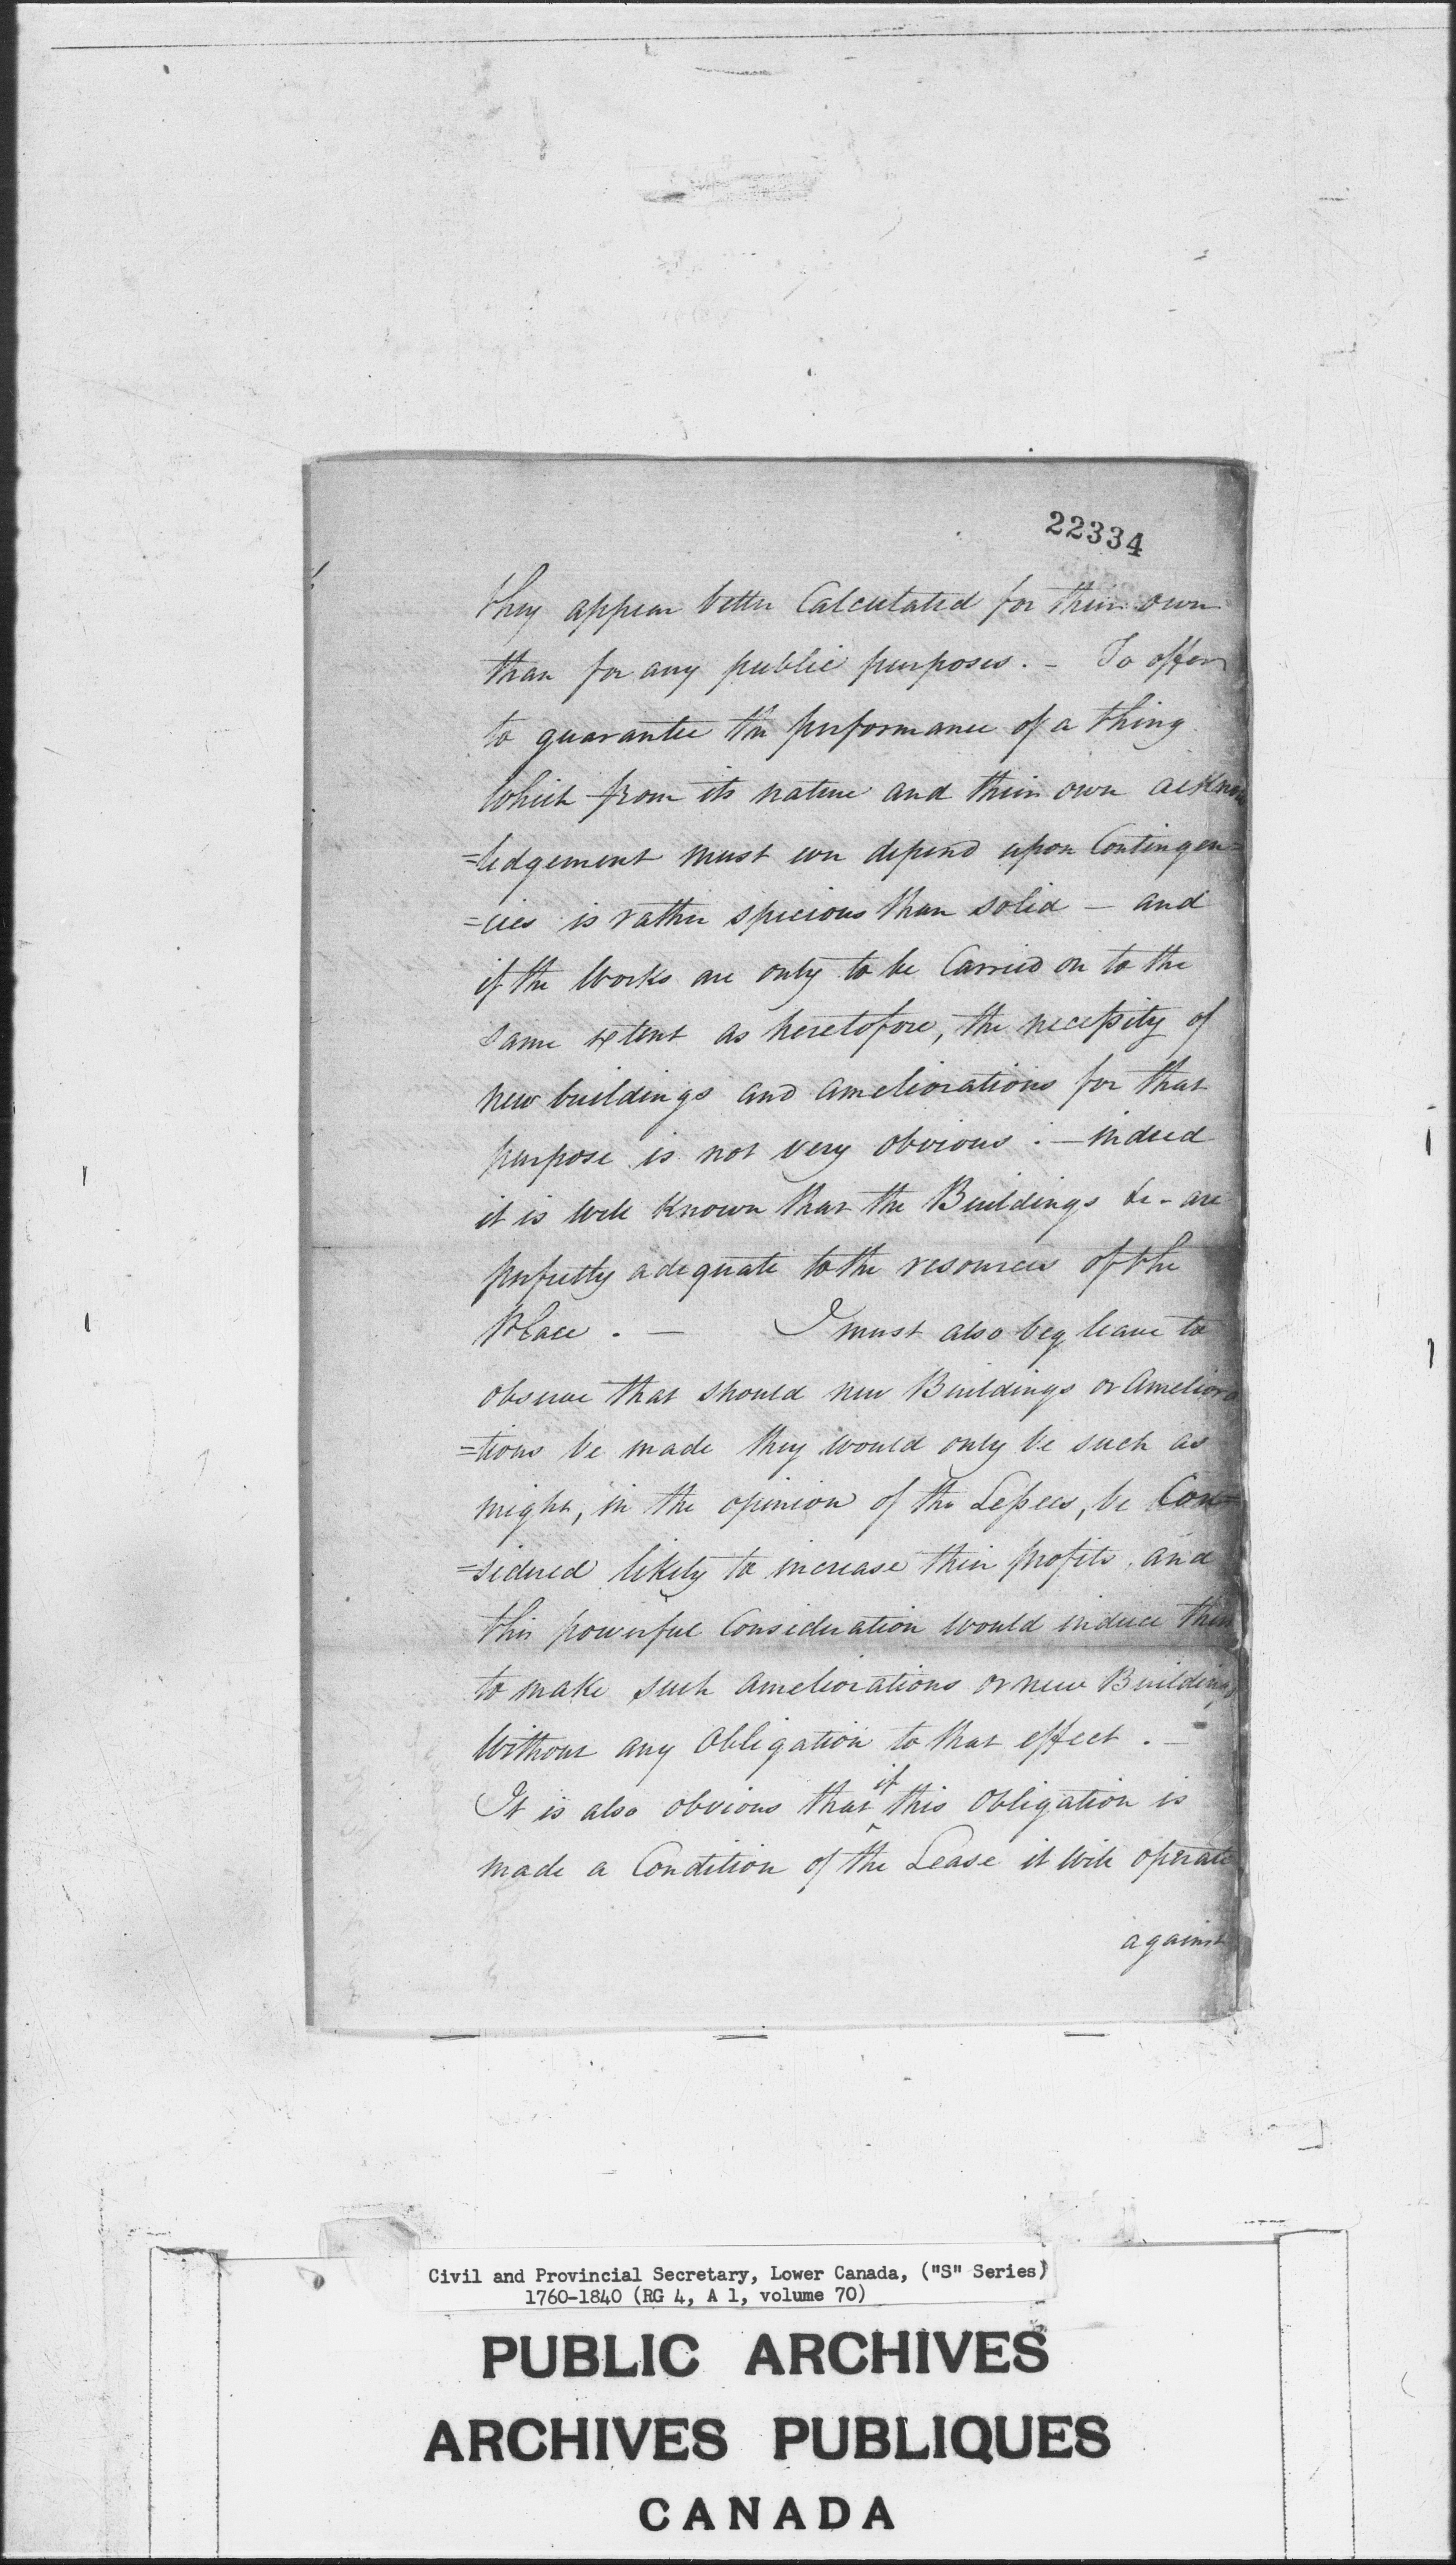 22334
they appear better Calculated for their own
than for any public purposes. - To offer
to guarantee the performance of a thing
which from its nature and their own acknow
=ledgement must ever depend upon Contingen=
=cies is rather specious than solid — and
if the Works are only to be Carried on to the
same extent as heretofore, the necessity of
new buildings and ameliorations for that
purpose is not very obvious :— indeed
it is well known that the Buildings &c - are
perfectly adequate to the resources of the
Place . — I must also beg leave to
observe that should new Buildings or Ameliora
=tions be made they would only be such as
might, in the opinion of the Lessees, be Con=
=sidered likely to increase their profits and
this powerful Consideration would induce them
to make such ameliorations or new Buildings
without any Obligation to that effect . —
It is also obvious that if this Obligation is
made a Condition of the Lease it will operate
against
Civil and Provincial Secretary, Lower Canada, ("S" Series)
1760-1840 (RG 4, A 1, volume 70)
PUBLIC ARCHIVES
ARCHIVES PUBLIQUES
CANADA